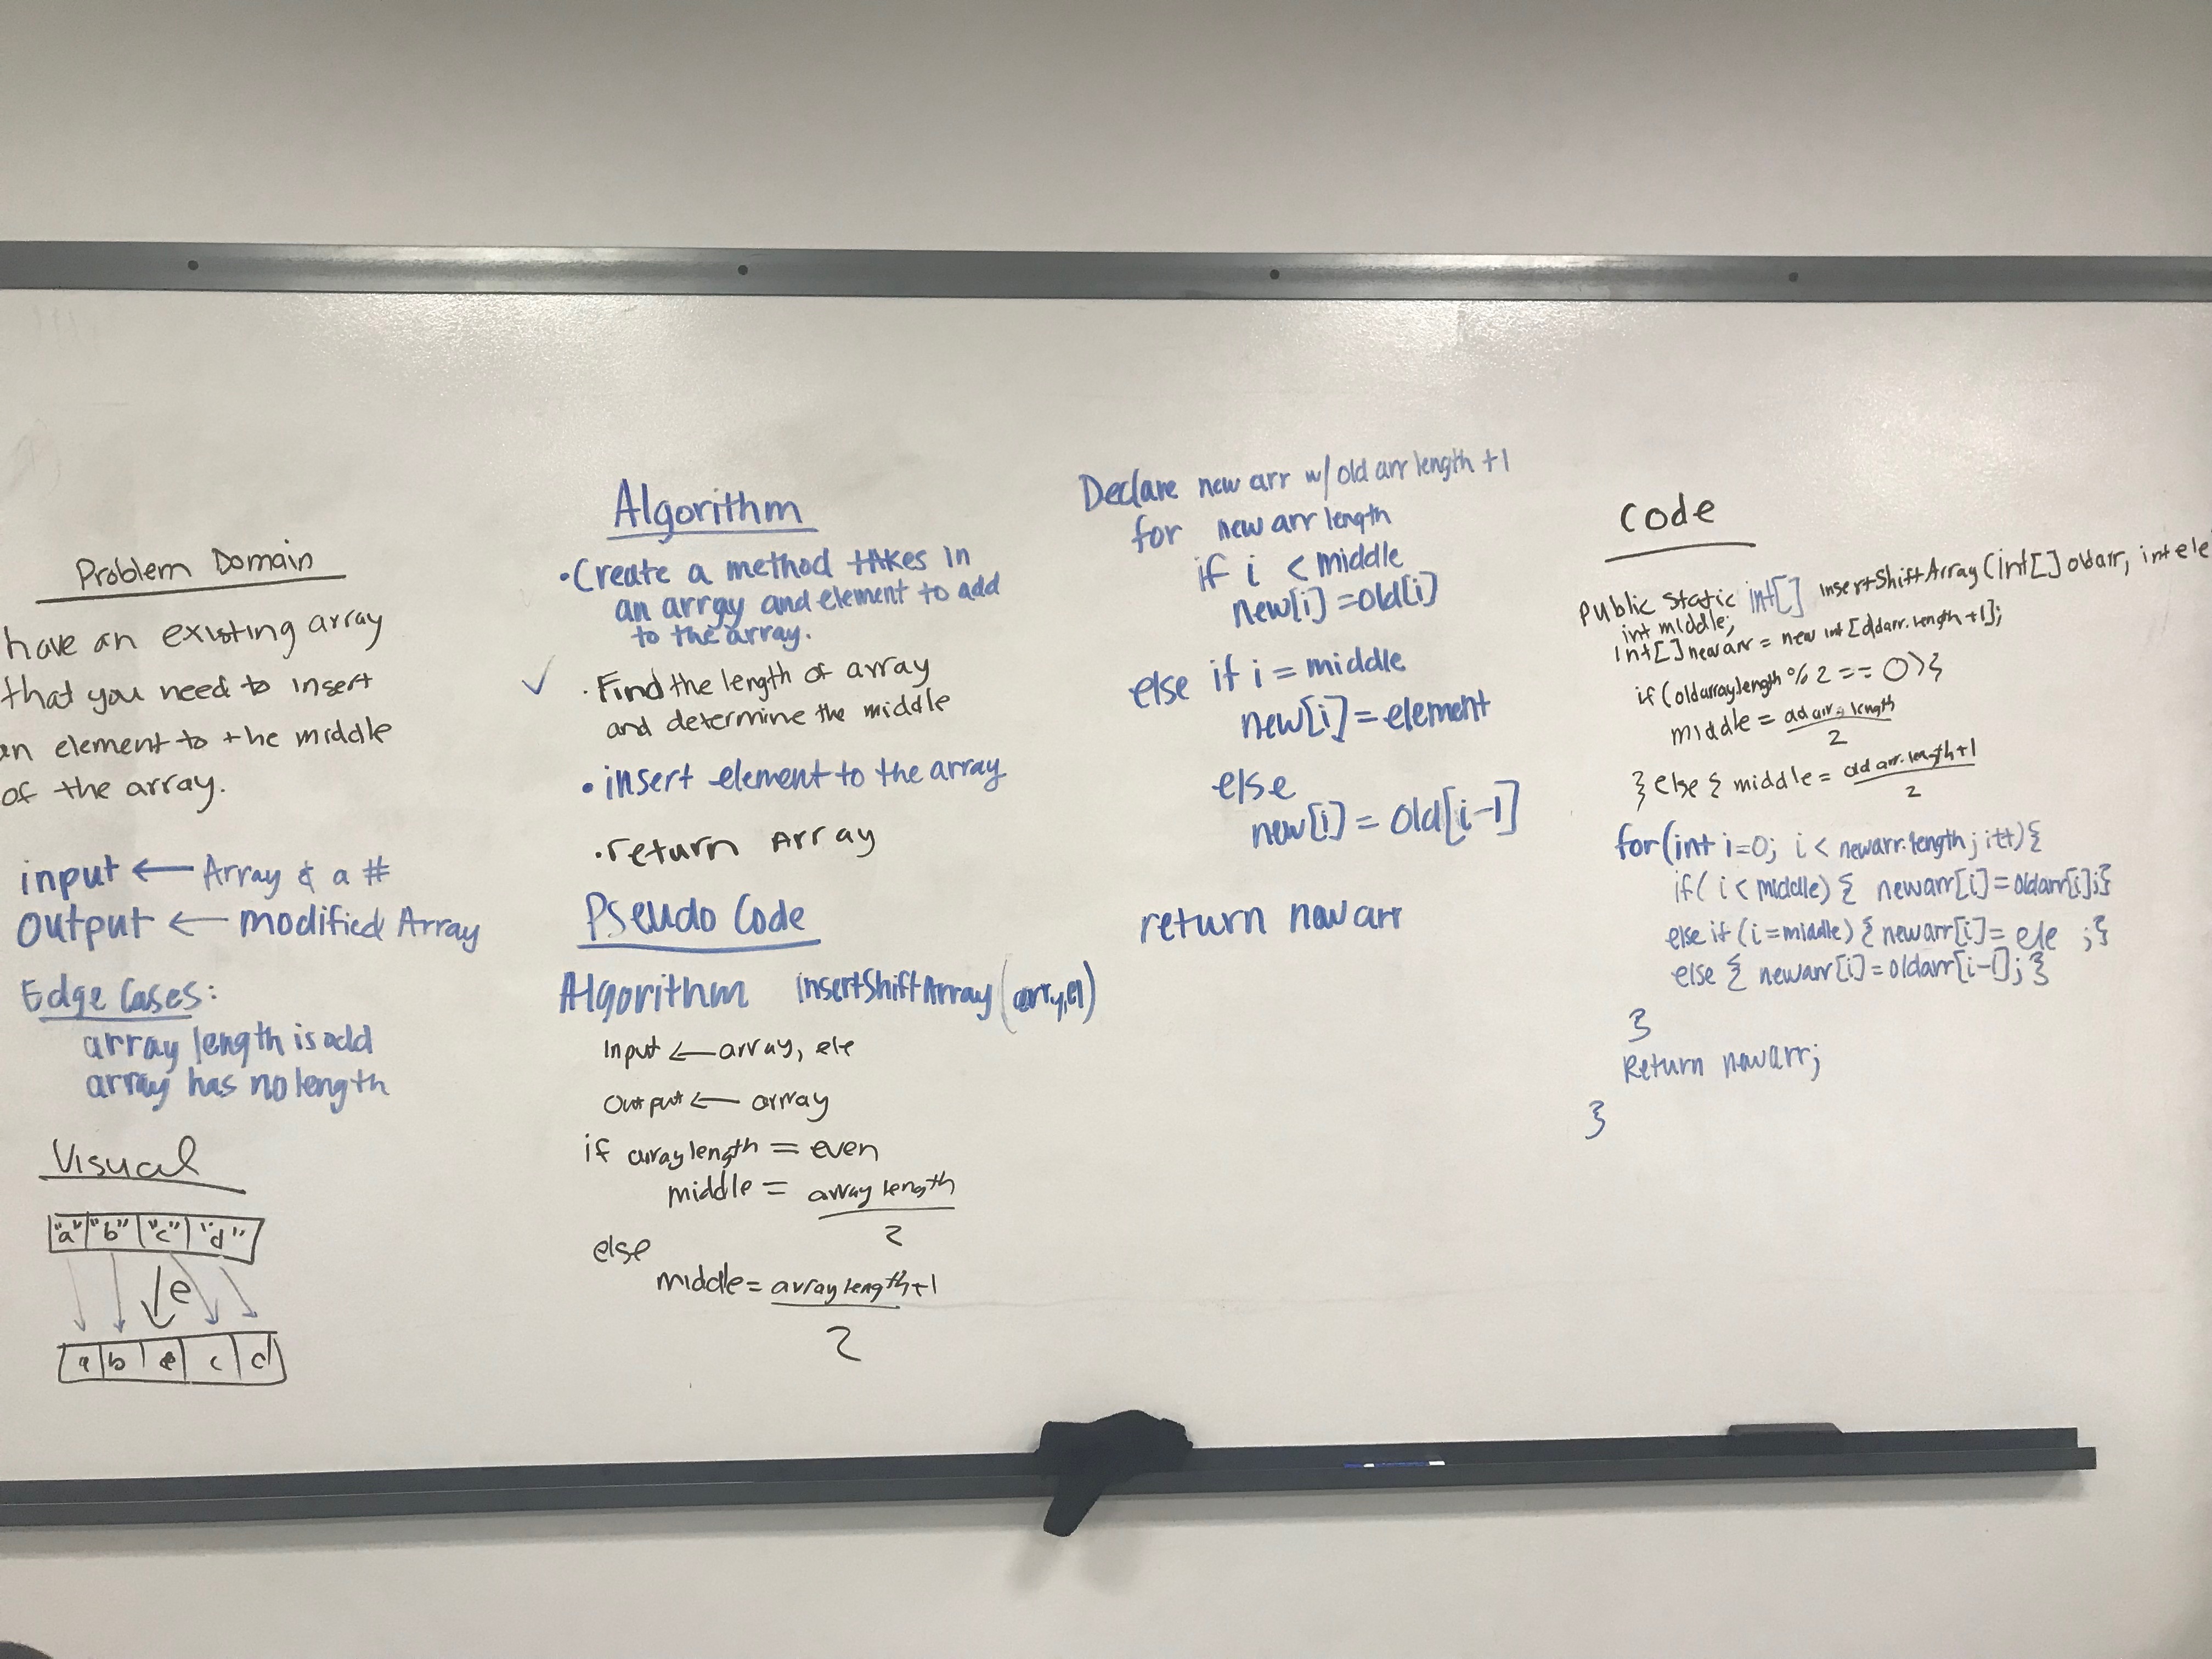 Problem Domain
have an existing array
that you need to insert
an element to the middle
of the array.
input ← Array & a #
output ← modified Array
Edge Cases:
array length is odd
array has no length
Visual
"a" "b" "c" "d"
e
a b e c d
Algorithm
• Create a method takes in
an array and element to add
to the array.
✓ • Find the length of array
and determine the middle
• insert element to the array
• return Array
Pseudo Code
Algorithm InsertShiftArray (arry, el)
Input ← array, ele
Output ← array
if array length = even
middle = array length
2
else
middle = array length + 1
2
Declare new arr w/ old arr length + 1
for new arr length
if i < middle
new[i] = old[i]
else if i = middle
new[i] = element
else
new[i] = old[i-1]
return new arr
Code
public static int[] InsertShiftArray (int[] oldarr, int ele
int middle;
int[] newarr = new int [oldarr.length+1];
if (oldarray length % 2 == 0) {
middle = old arr. length
2
} else { middle = old arr. length + 1
2
for (int i=0; i < newarr.length; i++) {
if ( i < middle) { newarr[i] = oldarr[i]; }
else if (i = middle) { newarr[i] = ele ; }
else { newarr[i] = oldarr[i-1]; }
}
Return newarr;
}